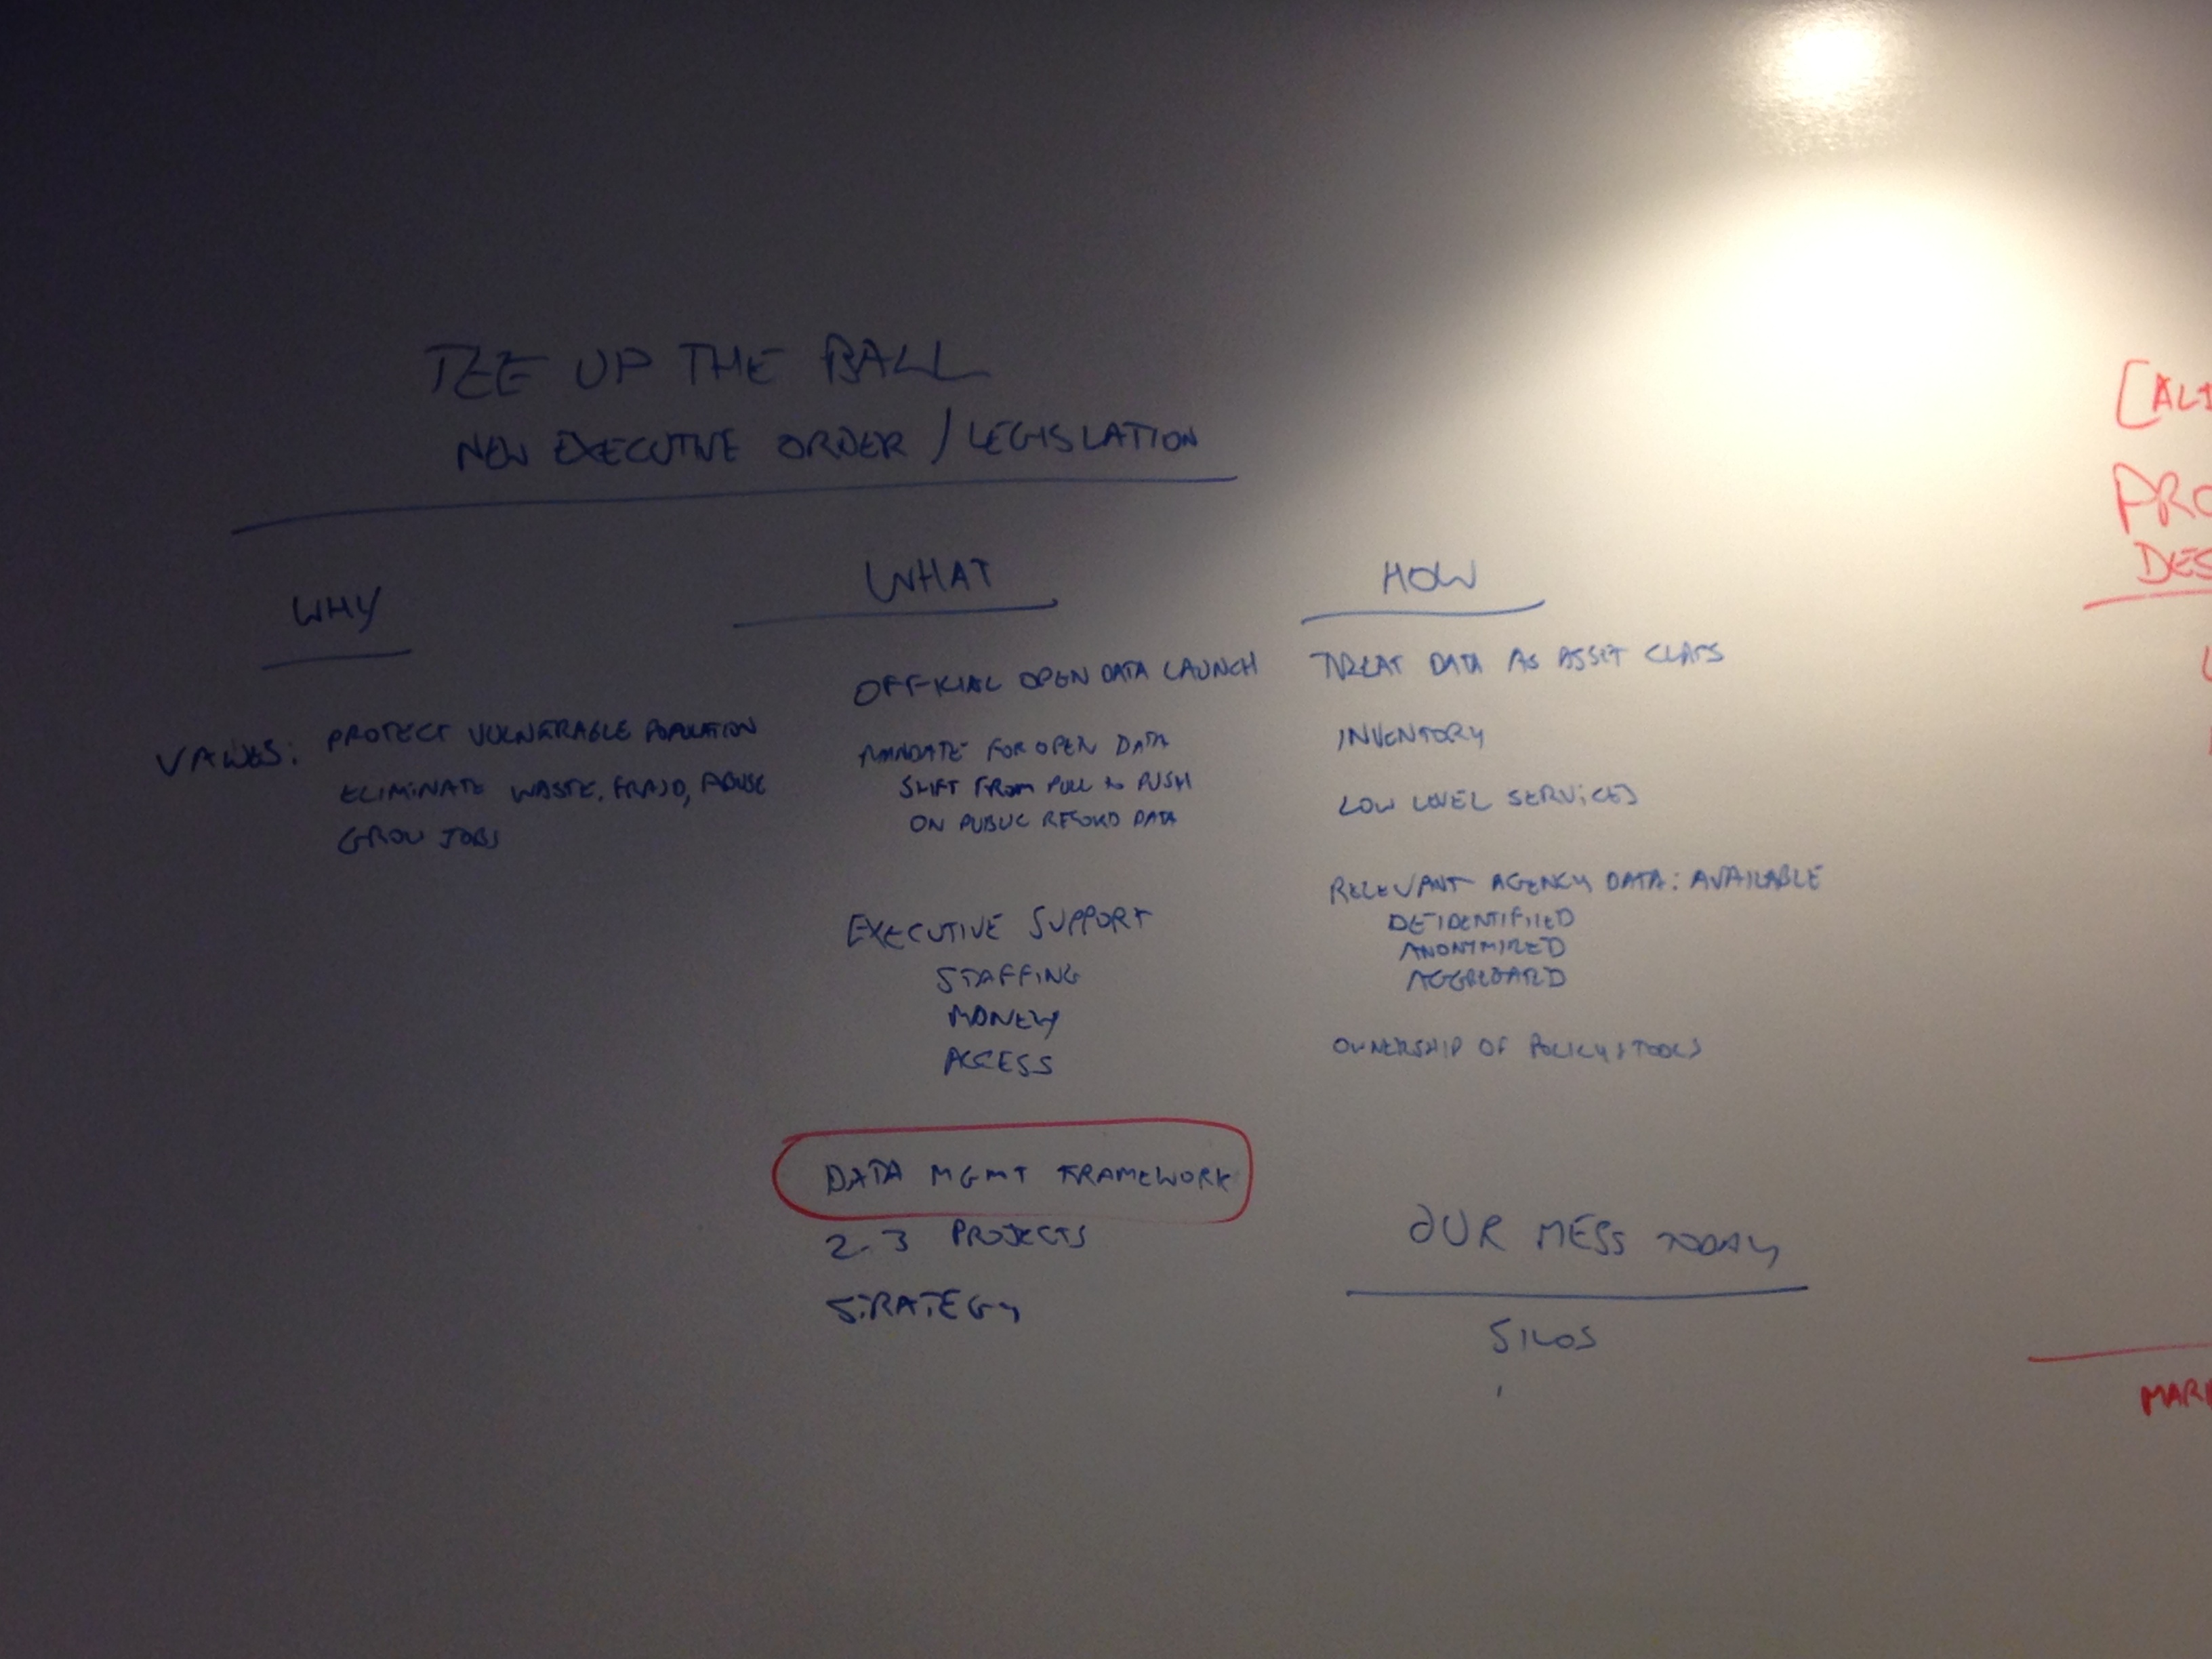 TEE UP THE BALL
NEW EXECUTIVE ORDER / LEGISLATION
WHY
VALUES: PROTECT VULNERABLE POPULATION
ELIMINATE WASTE, FRAUD, ABUSE
GROW JOBS
WHAT
OFFICIAL OPEN DATA LAUNCH
MANDATE FOR OPEN DATA
SHIFT FROM PULL to PUSH
ON PUBLIC RECORD DATA
EXECUTIVE SUPPORT
STAFFING
MONEY
ACCESS
DATA MGMT FRAMEWORK
2-3 PROJECTS
STRATEGY
HOW
TREAT DATA AS ASSET CLASS
INVENTORY
LOW LEVEL SERVICES
RELEVANT AGENCY DATA: AVAILABLE
DE-IDENTIFIED
ANONYMIZED
AGGREGATED
OWNERSHIP OF POLICY & TOOLS
OUR MESS TODAY
SILOS
PRO
DES
MAR